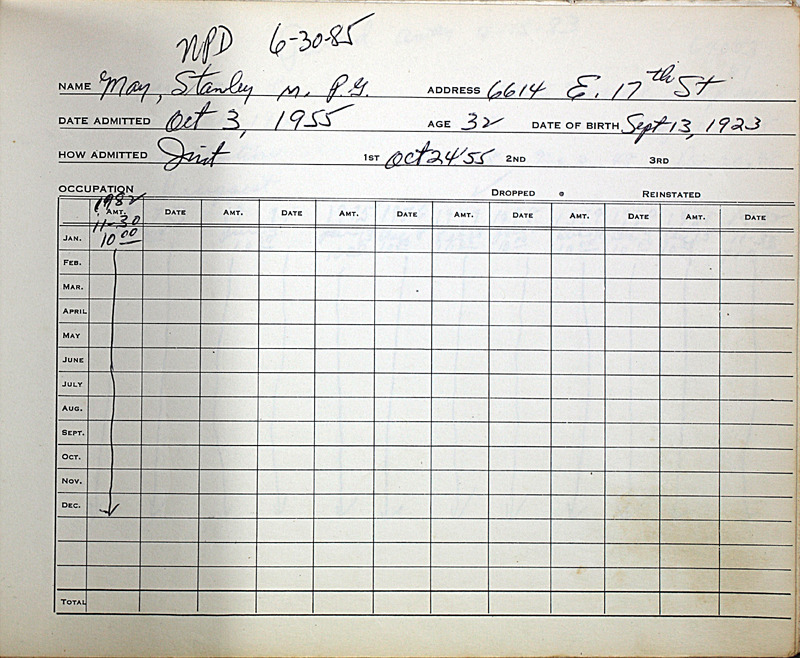 NPD 6-30-85
NAME May, Stanley M. P.G. ADDRESS 6614 E. 17th St
DATE ADMITTED Oct 3, 1955 AGE 32 DATE OF BIRTH Sept 13, 1923
HOW ADMITTED Init 1ST Oct 24 '55 2ND 3RD
OCCUPATION DROPPED REINSTATED
1982
AMT. DATE AMT. DATE AMT. DATE AMT. DATE AMT. DATE AMT. DATE
11-30
JAN. 10 00
FEB.
MAR.
APRIL
MAY
JUNE
JULY
AUG.
SEPT.
OCT.
NOV.
DEC.
TOTAL